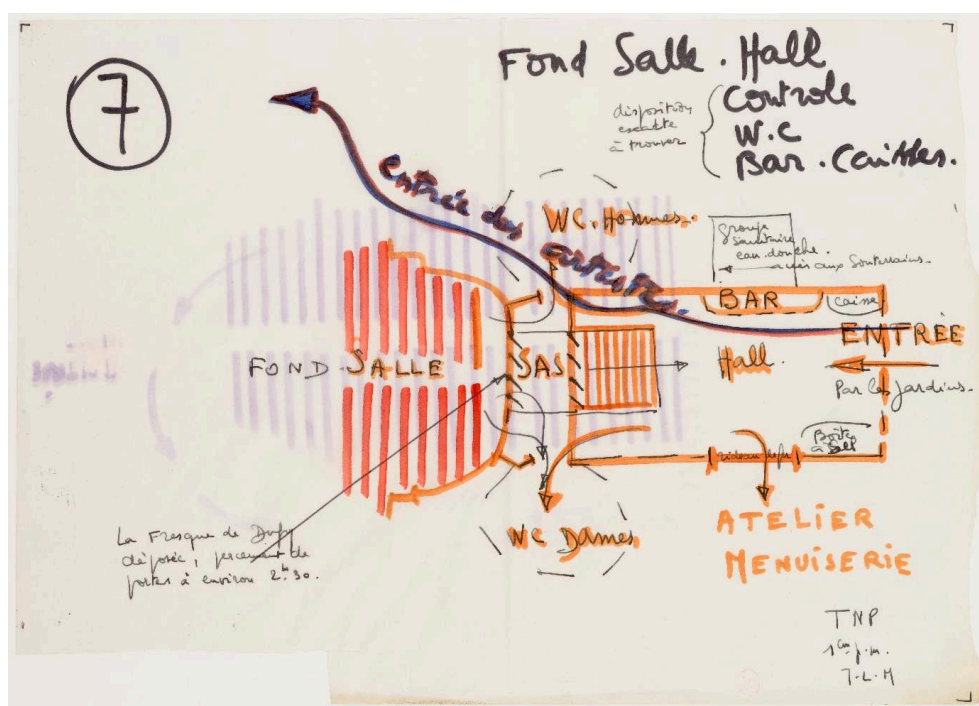 7
Fond Salle. Hall
Controle
W.C
Bar. Caisses.
disposition
exacte
à trouver
entrée des artistes.
WC. Hommes.
groupe
sanitaire
eau. douche.
accès aux Souterrains.
BAR
caisse
ENTRÉE
FOND SALLE
SAS
Hall.
Par les jardins.
Boîte
à Sel
rideau de fer
WC Dames.
ATELIER
MENUISERIE
La Fresque de Dufy
déposée, percement de
portes à environ 2m.30.
TNP
1cm p.m.